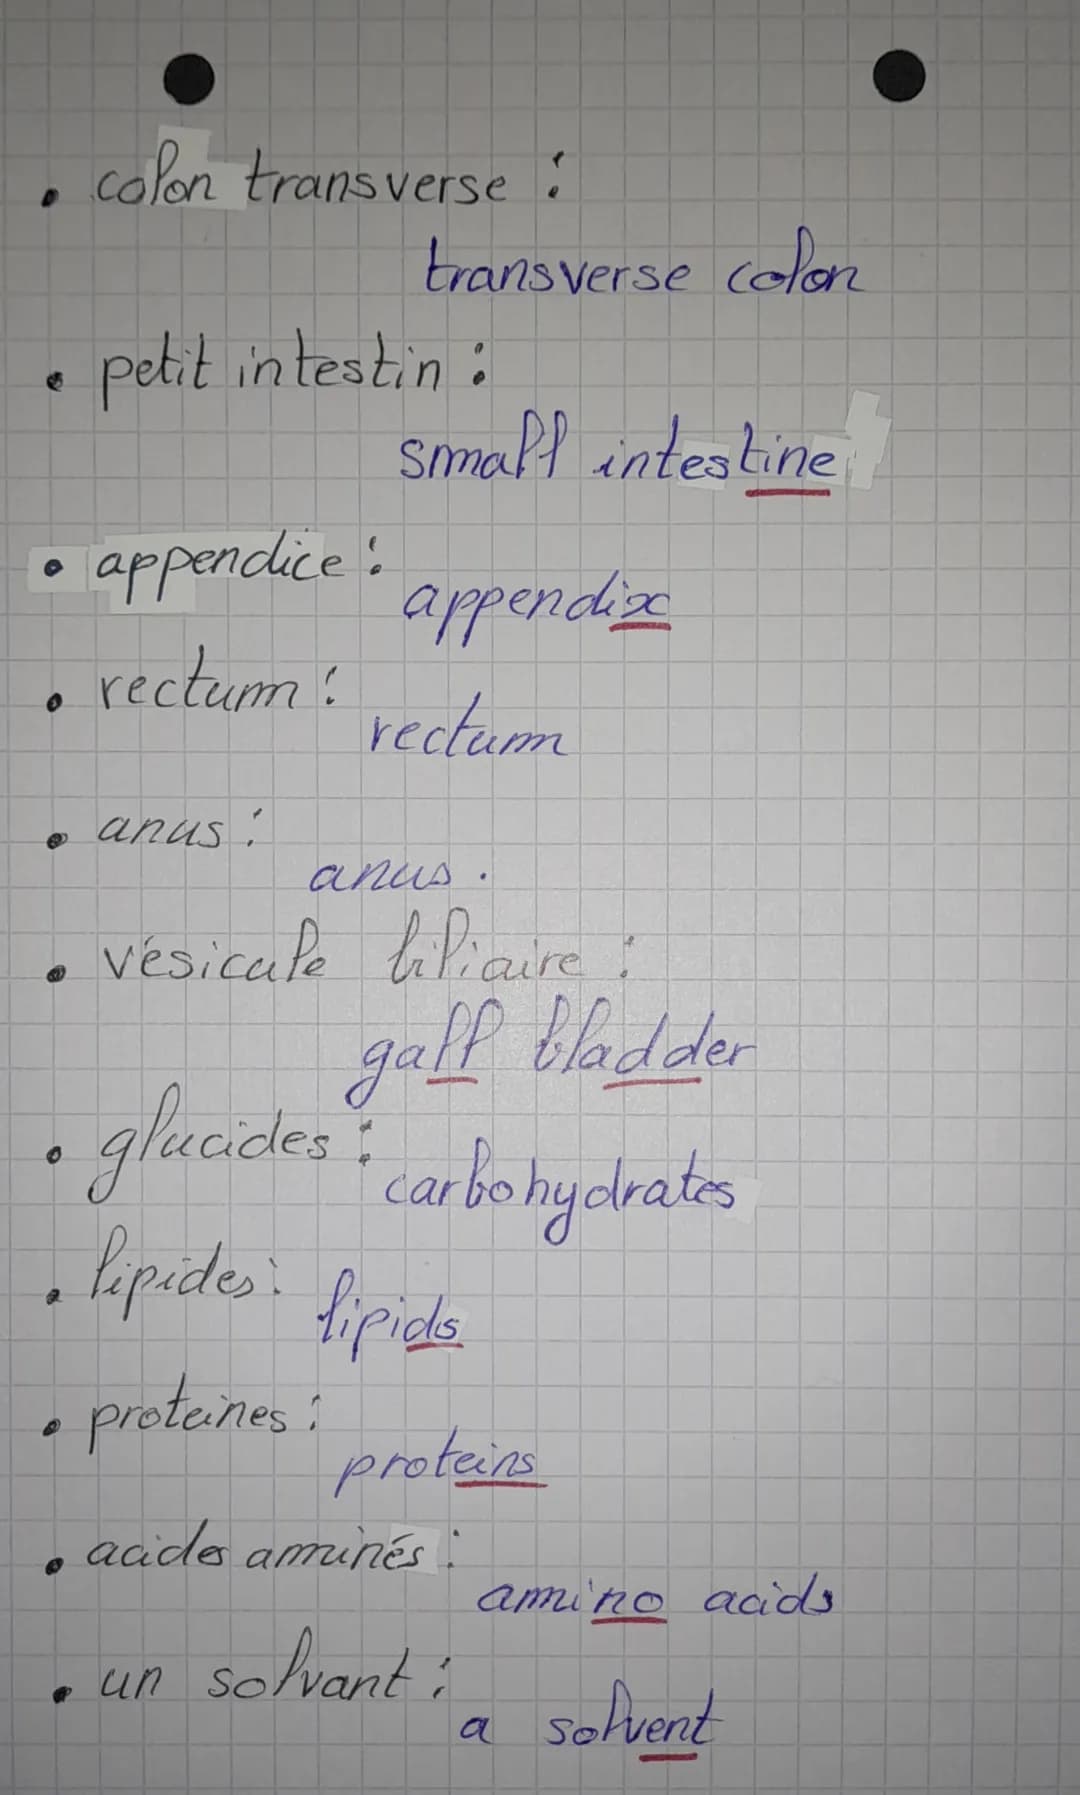 • colon transverse :
transverse colon
• petit intestin :
small intestine
• appendice :
appendix
• rectum :
rectum
• anus :
anus.
• vésicule biliaire :
gall bladder
• glucides :
carbohydrates
• lipides :
lipids
• proteines :
proteins
• acides aminés :
amino acids
• un solvant :
a solvent